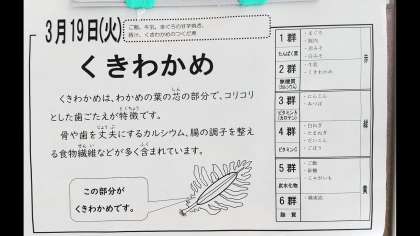 3月19日(火)
ご飯、牛乳、まぐろの甘辛焼き、
豚汁、くきわかめのつくだ煮
くきわかめ
くきわかめは、わかめの葉の芯の部分で、コリコリ
しん
とした歯ごたえが特徴です。
とくちょう
骨や歯を丈夫にするカルシウム、腸の調子を整え
じょうぶ
る食物繊維などが多く含まれています。
せんい
ふく
この部分が
くきわかめです。
1群
たんぱく質
・まぐろ
・豚肉
2群
無機質
(カルシウム)
・牛乳
・くきわかめ
3群
ビタミンA
(カロテン)
・にんじん
4群
ビタミンC
・ごぼう
5群
炭水化物
・ご飯
・砂糖
・じゃがいも
6群
脂質
赤
緑
黄